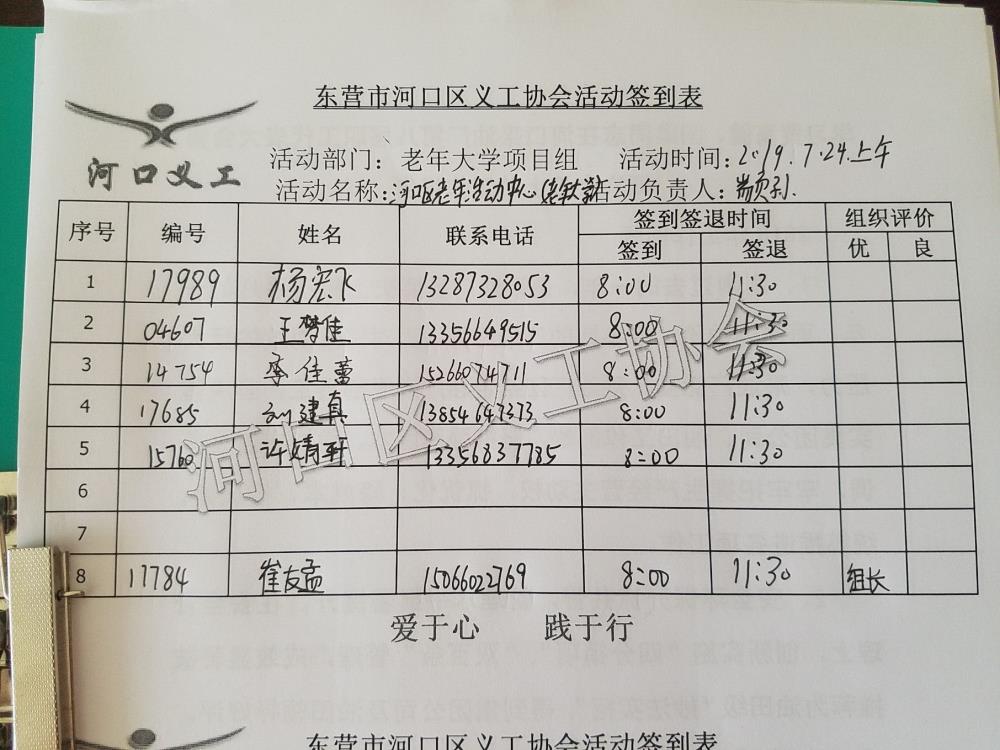 东营市河口区义工协会活动签到表
河口义工
活动部门：老年大学项目组 活动时间：2019.7.24.上午
活动名称：河口区老年活动中心 活动负责人：
序号 编号 姓名 联系电话 签到签退时间 组织评价
签到 签退 优 良
1 17989 杨宏飞 13287328053 8:00 11:30
2 04607 王梦佳 13356649515 8:00 11:30
3 14754 李佳蕾 15266074711 8:00 11:30
4 17685 刘建真 13854647373 8:00 11:30
5 1576 许婧 13356837785 8:00 11:30
6
7
8 17784 崔友孟 15066022769 8:00 11:30 组长
河口区义工协会
爱于心 践于行
东营市河口区义工协会活动签到表